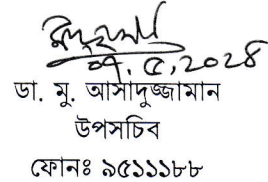 ০৭.৫.২০২৪
ডা. মু. আসাদুজ্জামান
উপসচিব
ফোনঃ ৯৫১১১৮৮